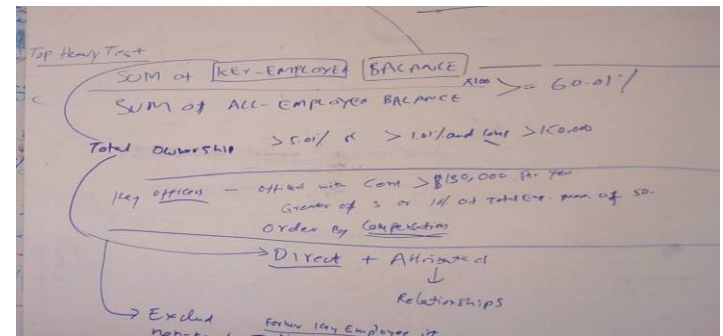 Top Heavy Test
SUM of KEY-EMPLOYEE BALANCE
SUM of ALL-EMPLOYEE BALANCE x100 >= 60.01%
Total Ownership >5.01% or >1.01% and comp >150,000
Key officers - officers with Com >$150,000 per year.
Greater of 3 or 10% of Total Exe. max. of 50.
Order By Compensation
Direct + Attributed
↓
Relationships
→ Exclud Former Key Employee